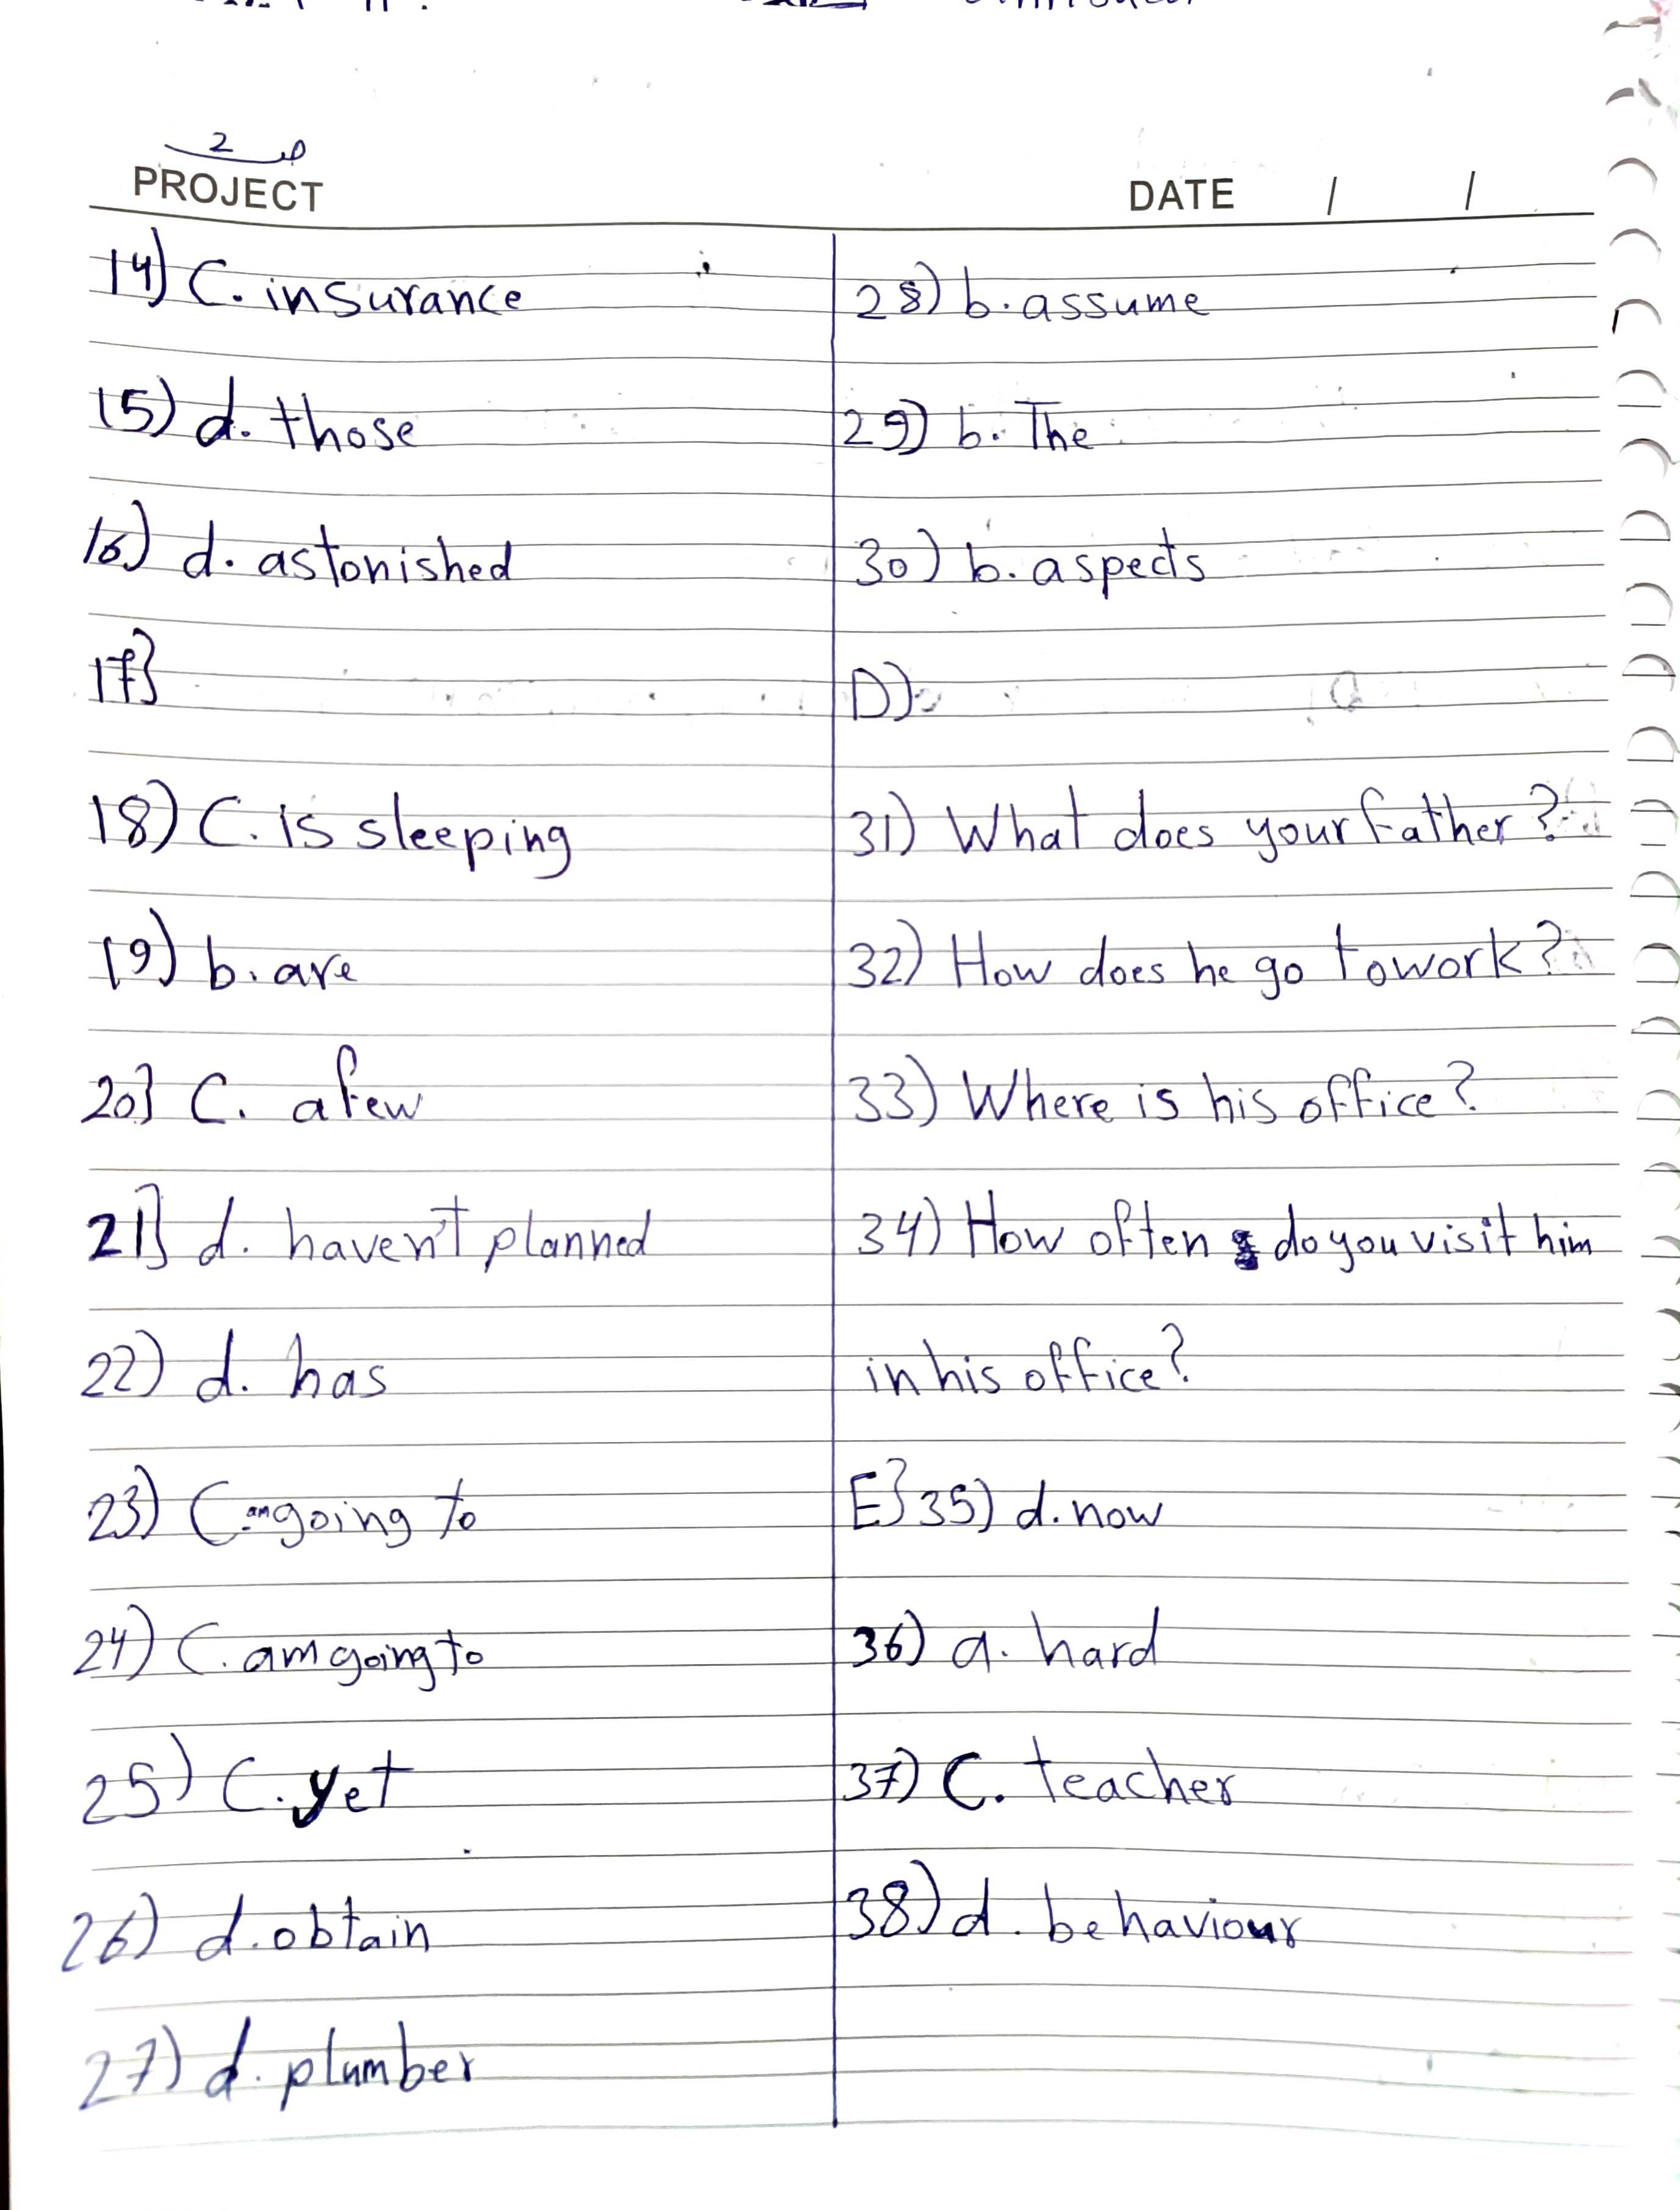 ص 2
PROJECT
DATE / /
14) C. insurance
15) d. those
16) d. astonished
17}
18) C. is sleeping
19) b. are
20} C. a few
21} d. haven't planned
22) d. has
23) C. am going to
24) C. am going to
25) C. yet
26) d. obtain
27) d. plumber
28) b. assume
29) b. The
30) b. aspects
D)
31) What does your father?
32) How does he go to work?
33) Where is his office?
34) How often do you visit him
in his office?
E} 35) d. now
36) a. hard
37) C. teacher
38) d. behaviour